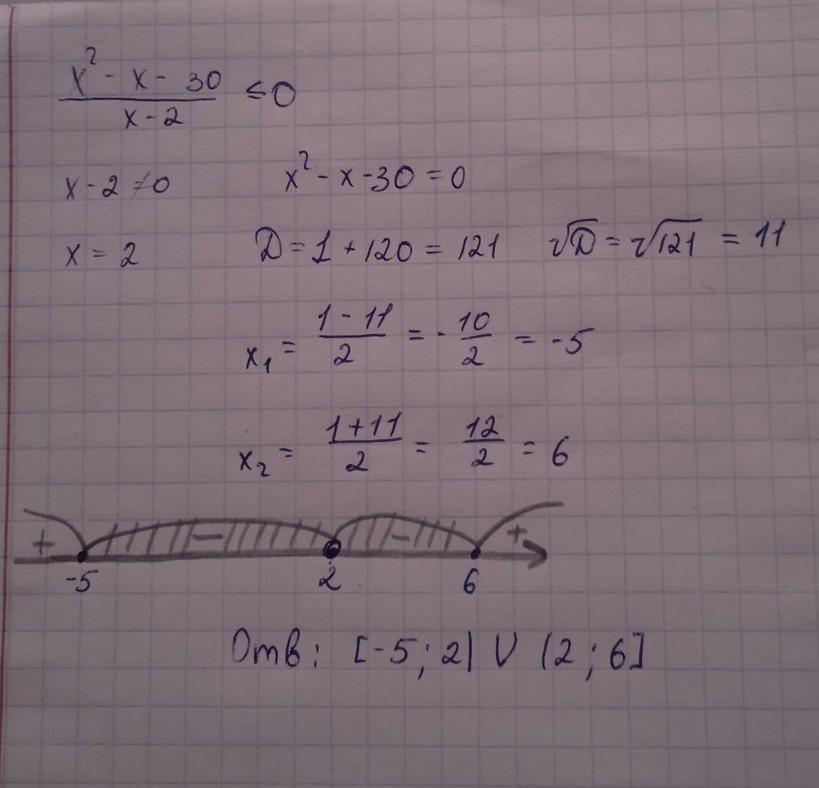 x² - x - 30 / x - 2 ≤ 0
x - 2 ≠ 0 x² - x - 30 = 0
x = 2 D = 1 + 120 = 121 √D = √121 = 11
x₁ = 1 - 11 / 2 = - 10 / 2 = -5
x₂ = 1 + 11 / 2 = 12 / 2 = 6
+ - - +
-5 2 6
Отв: [-5; 2) U (2; 6]